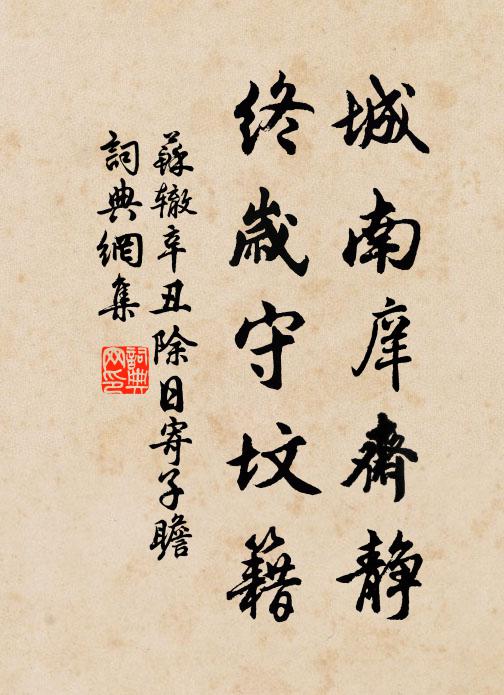 城南庠齋靜
終歲守坟籍
蘇轍辛丑除日寄子瞻
詞典網集
詞典
网印